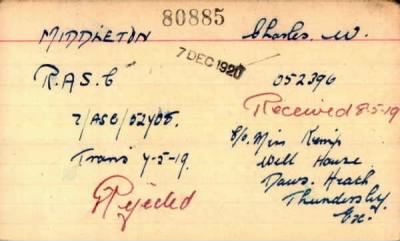 80885
MIDDLETON Charles. W.
7 DEC 1920
R.A.S.C 052396
Received 8-5-19
T/ASC/52405.
C/o. Miss Kemp
Trans 7-5-19. Well House
Rejected Daws. Heath
Thundersley
Ex.